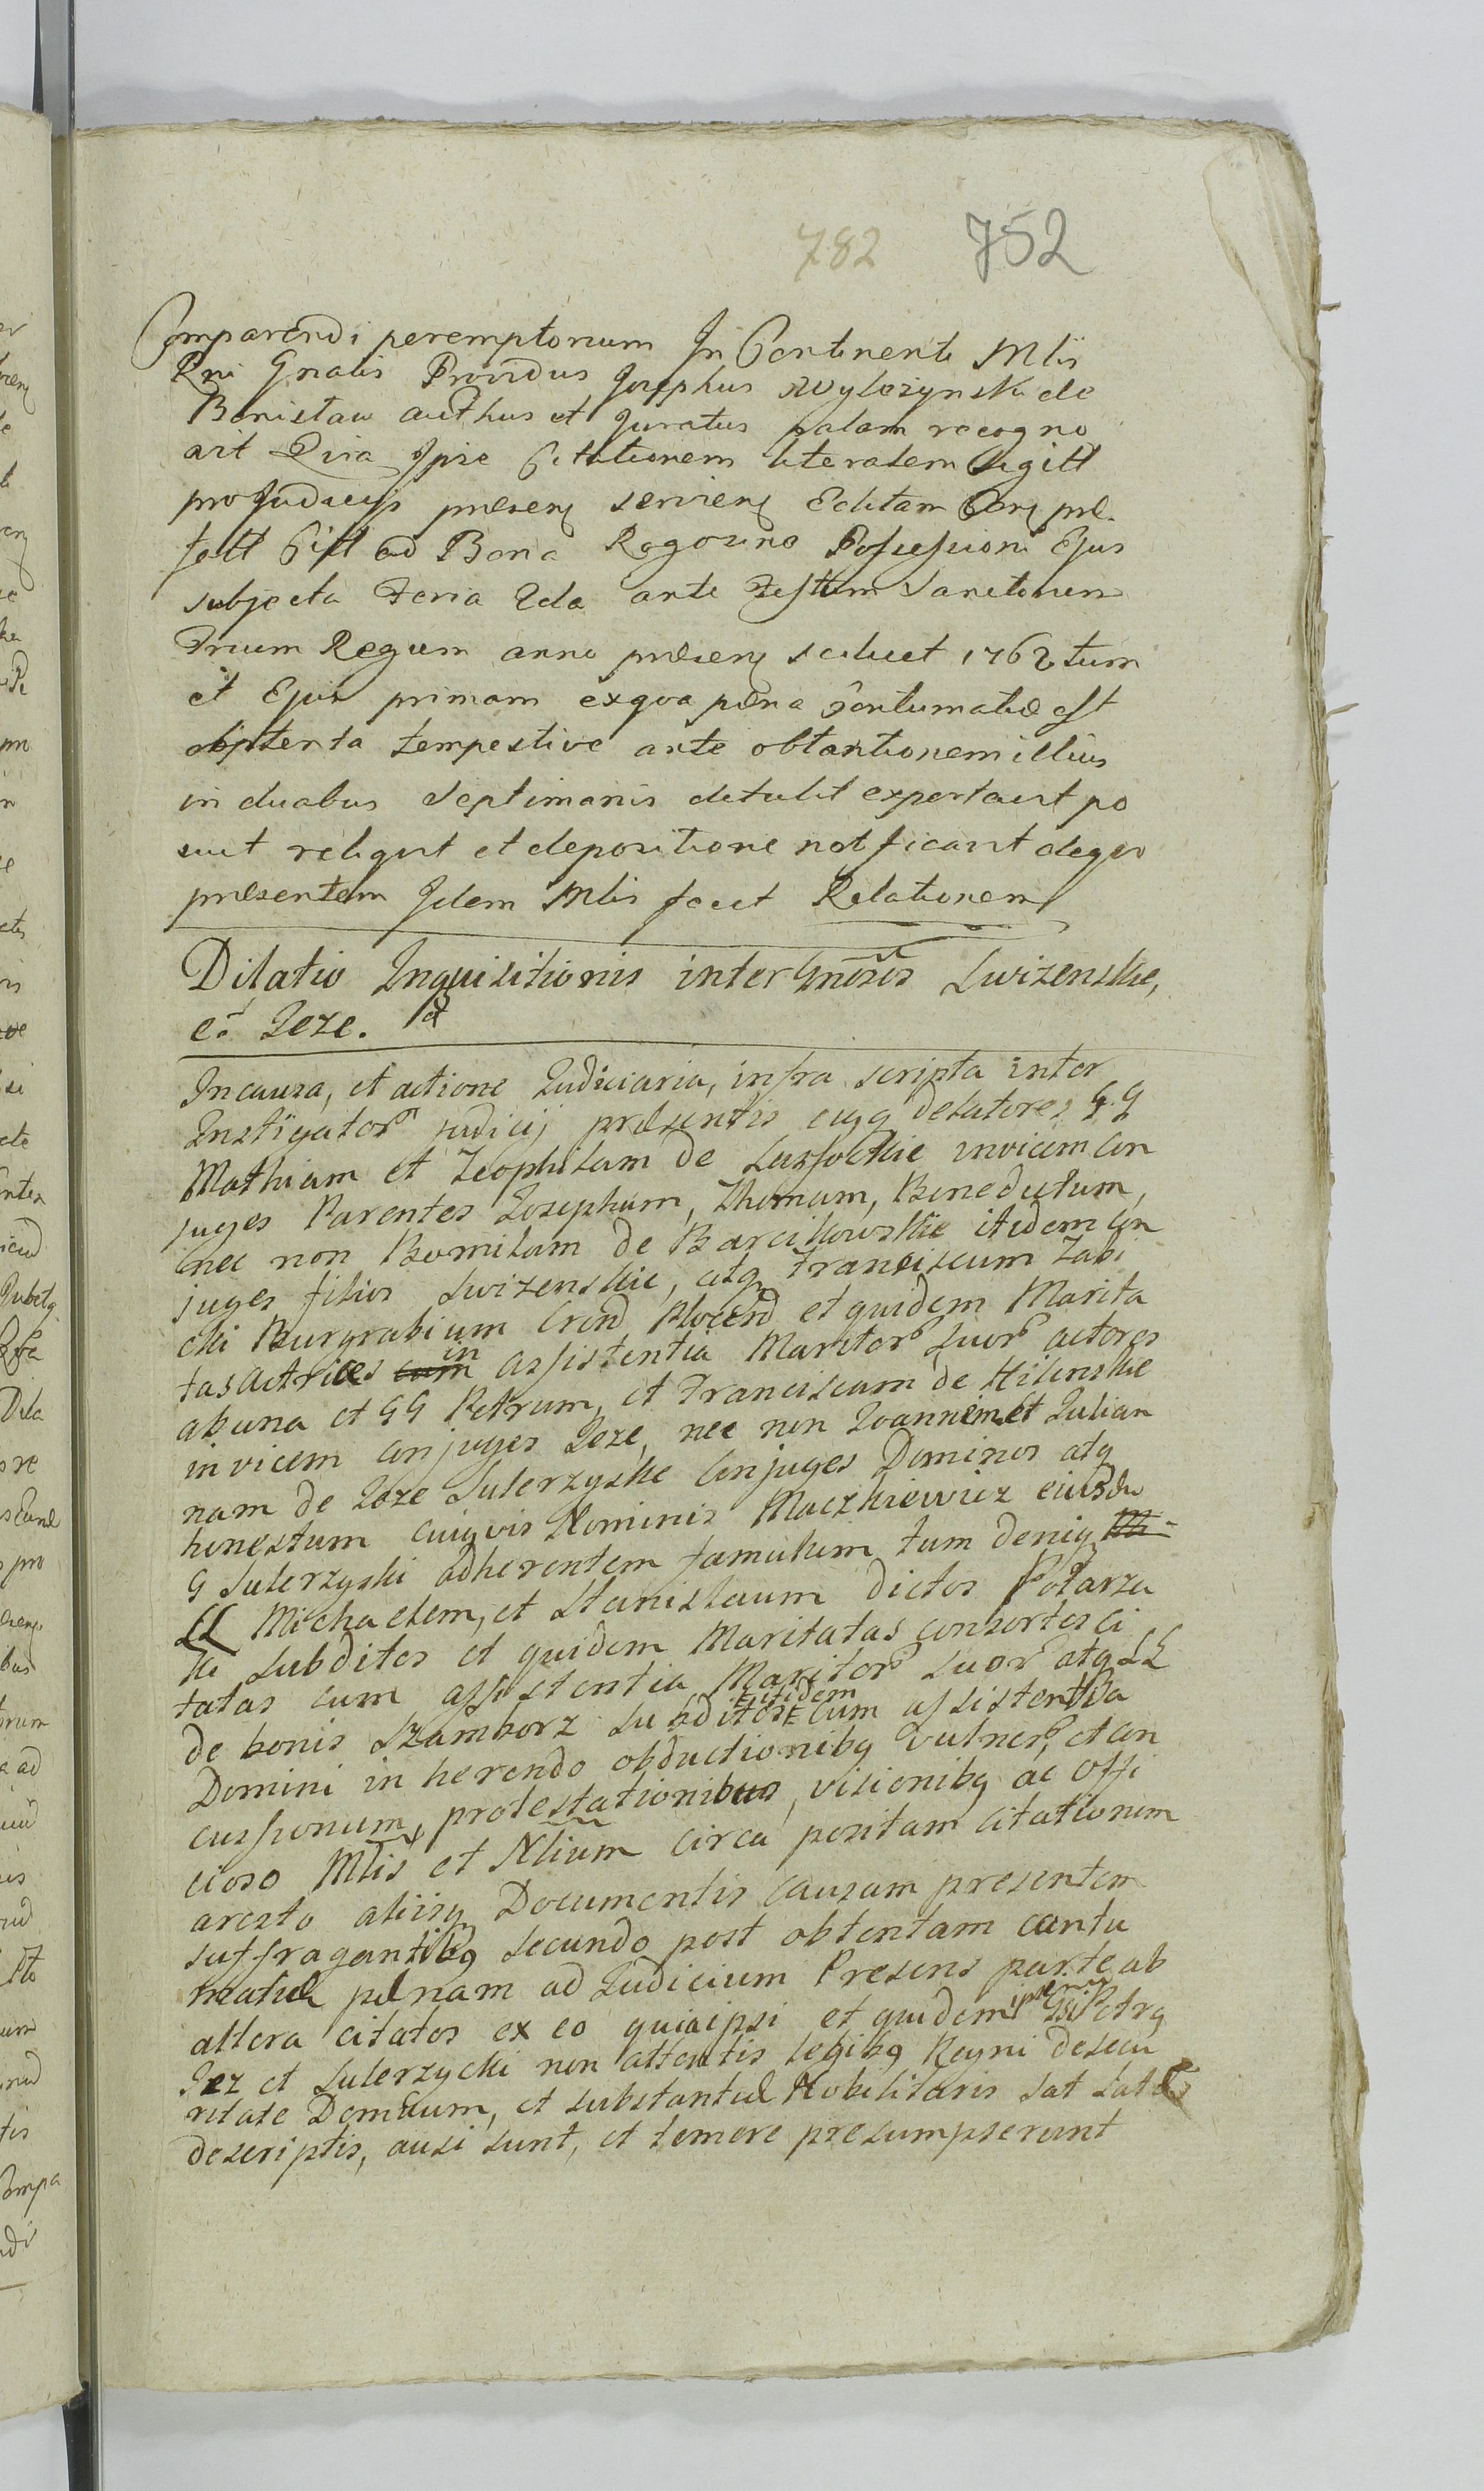 782 752
Comparendi peremptorium In Continenti Mlis
Rni Gnalis Providus Josephus Wylezynski de
Bonistaw authus et Juratus palam recogno
vit Quia Ipse Citationem literalem
pro Judicys presenę servienę Editam
ad Bona Rogozino Possessioni Ejus
subjecta Feria 2da ante Festum Sanctorum
Trium Regum anno presenę scilicet 1762 tum
et Ejus primam exqva pæna Contumatiæ est
obtenta tempestive ante obtentionem illius
in duabus Septimanis detulit exportavit po
suit reliqvit et depositione notificavit de qvo
præsentem Idem Mlis fecit Relationem
Dilatio Inquisitionis inter Gnosos Swizenskie,
et Jeze.
In causa, et actione Judiciaria, infra scripta inter
Instigator Judicij præsentis eiqq delatores G. G
Mathiam et Teophilam de Lassockie invicem con
juges Parentes Josephum, Thomam, Benedictum,
nec non Bomilam de Barcikowskie itidem con
juges filios Swizenskie, atq Franciscum Zabi
cki Burgrabium Crend Plocend et quidem Marita
tas actrices cum in assistentia Maritor suor actores
ab una et GG Petrum, et Franciscam de Hilenskie
invicem conjuges Jeze, nec non Joannem et Julian
nam de Jeze Sulerzyskie Conjuges Dominos atq
honestum cuiqvis Nominis Maczkiewicz eiusdu
G Sulerzyski adherentem famulum tum deniq
LL Michaelem, et Stanislaum dictos Potarza
ki subditos et quidem Maritatas consortes ci
tatas cum assistentia Maritor suor atq LL
de bonis Szamborz subditos E itidem cum assistentia
Domini in herendo obductionibq vulner, et con
cussionum, protestationibus, visionibq ac offi
cioso Mlis et Nlium circa positam citationem
aresto aliisq Documentis causam presentem
suffragantibq secundo post obtentam contu
matiæ pænam ad Judicium Presens parte ab
altera citatos ex eo quia ipsi et quidem ipsemet Gsi Petrq
Jez et Sulerzycki non attentis legibq Regni de secu
ritate Domuum, et substantiæ Nobilitaris sat late
descriptis, ausi sunt, et temere presumpserunt